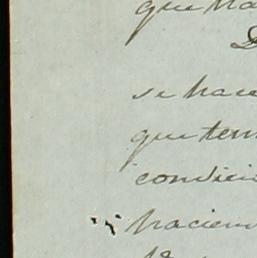 que ha
D
se hace
que ten
condici
hacien